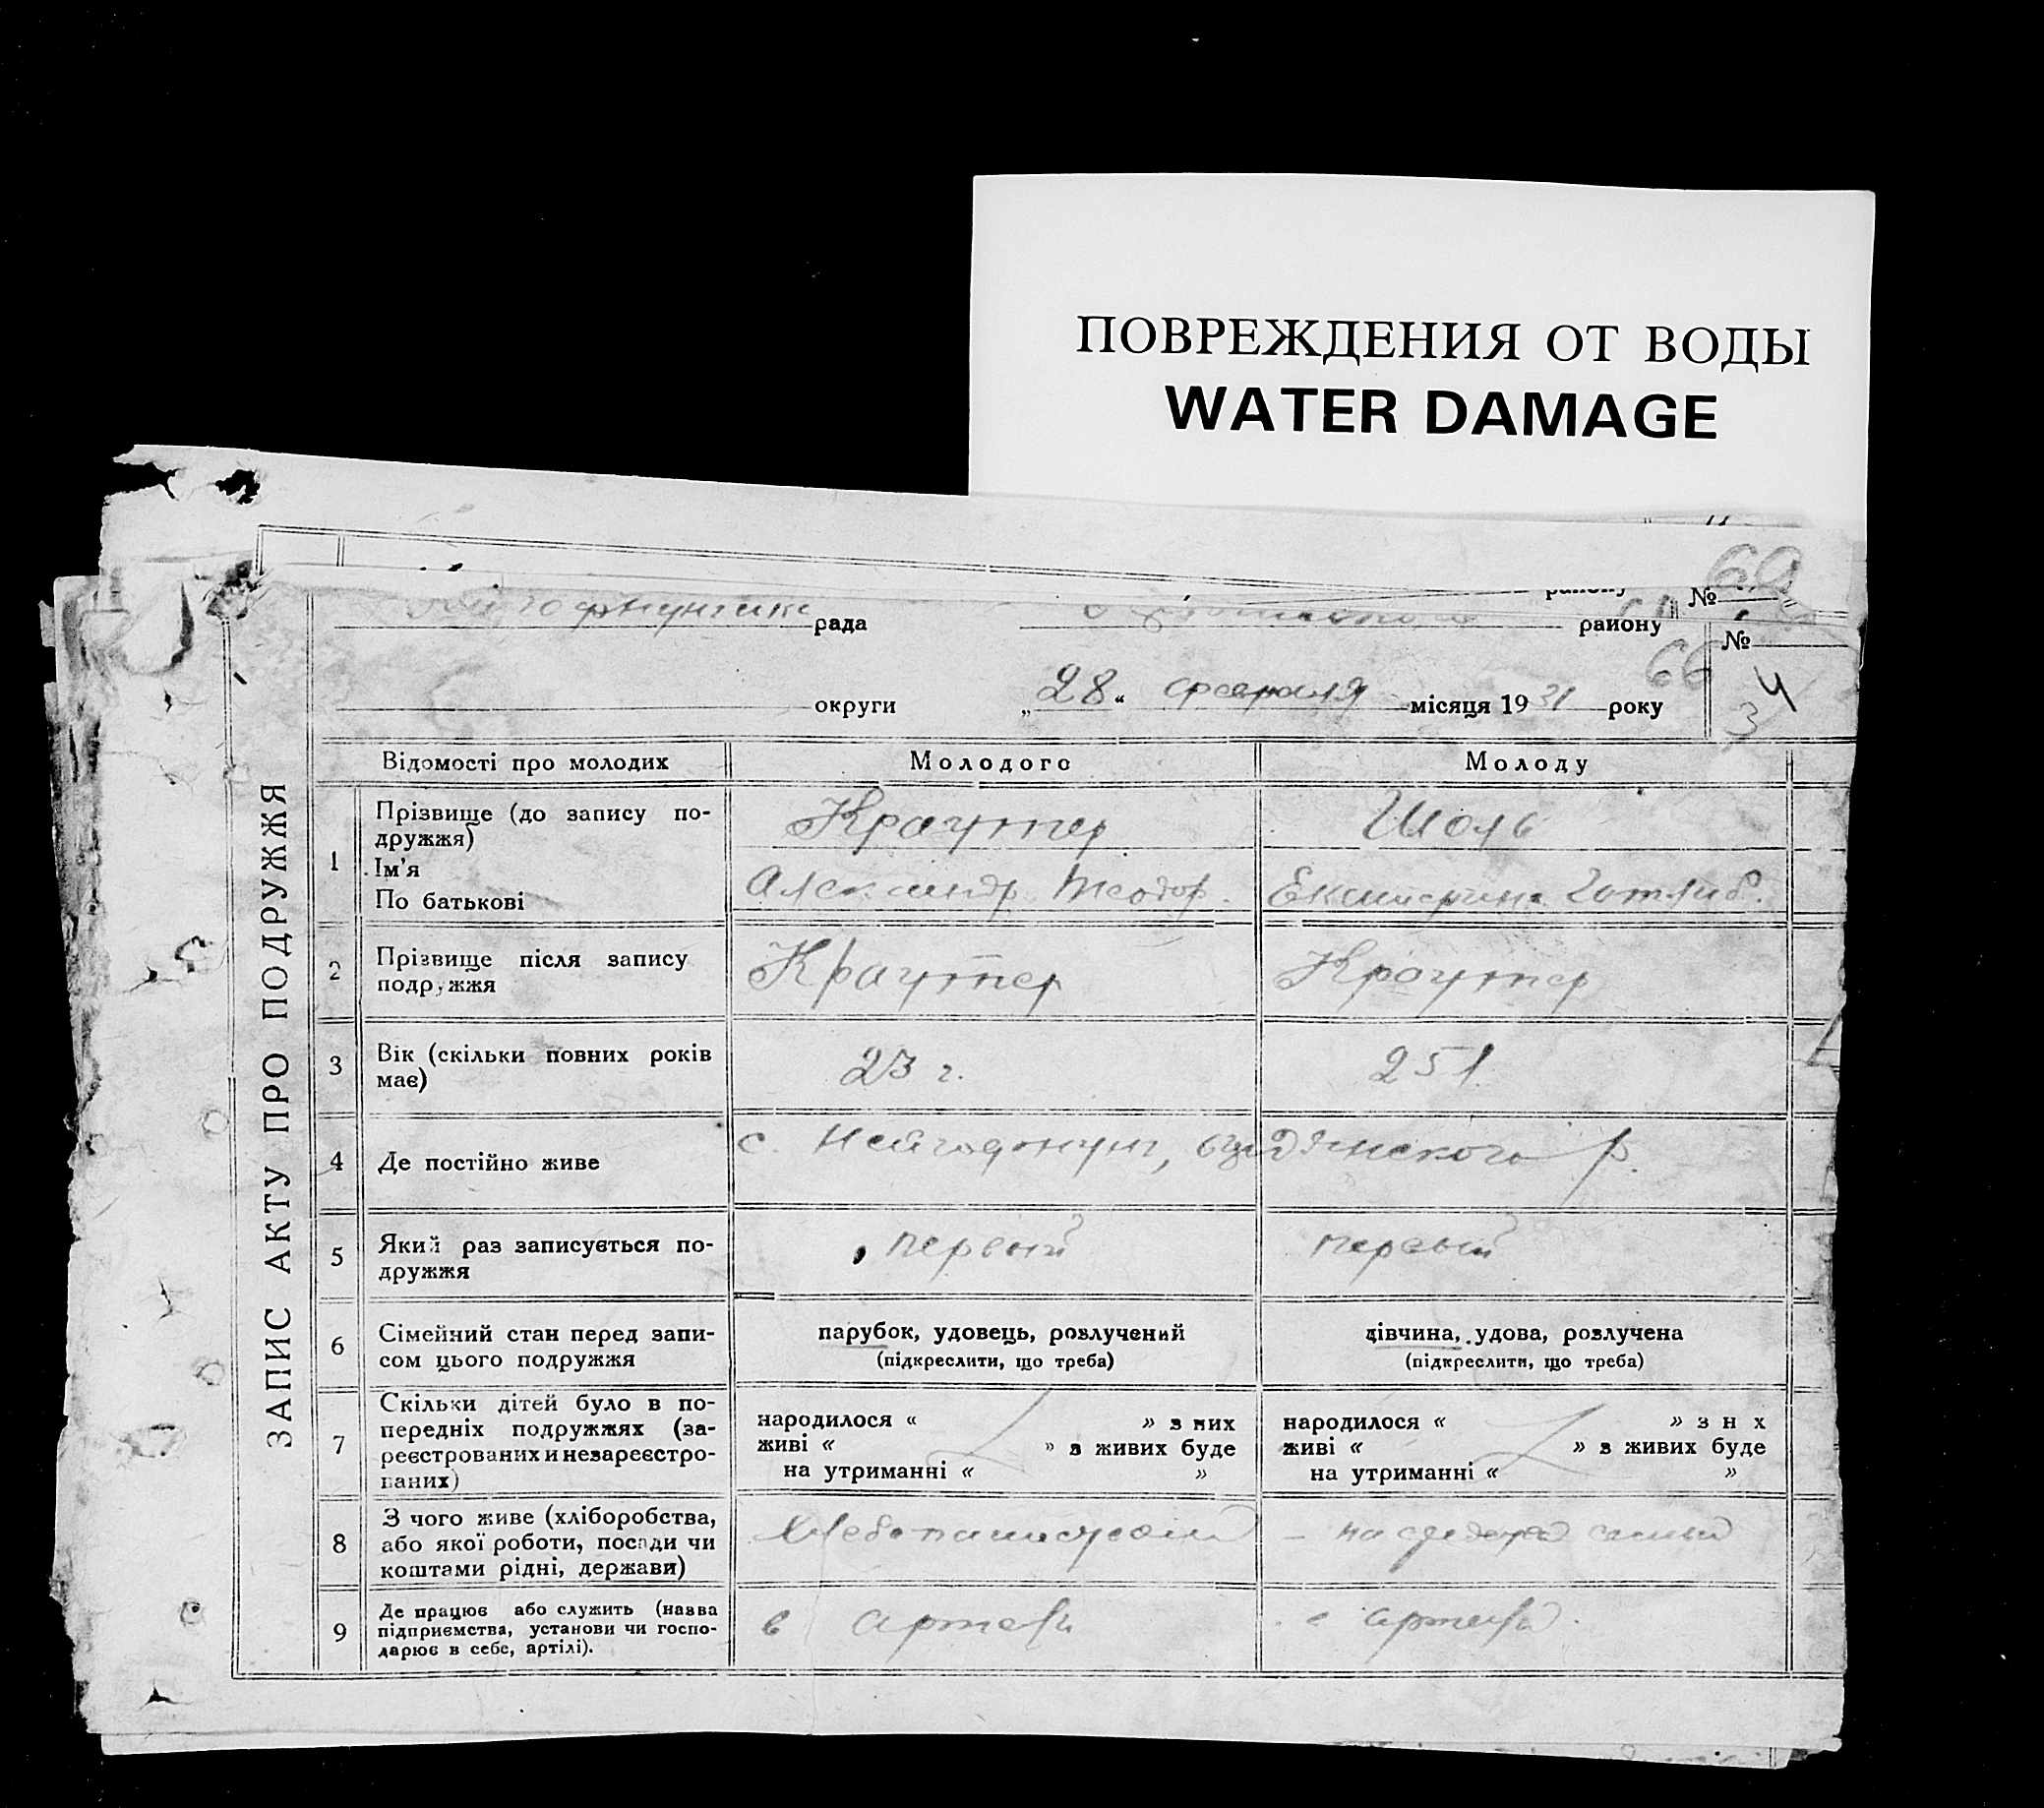 ПОВРЕЖДЕНИЯ ОТ ВОДЫ
WATER DAMAGE
69
району №
рада району №
66
округи „28“ февраля місяця 1931 року
4
3
ЗАПИС АКТУ ПРО ПОДРУЖЖЯ
Відомості про молодих Молодого Молоду
1 Прізвище (до запису по-
дружжя) Краутер Шоль
Ім'я
По батькові Александр Теодор. Екатерина Готлиб.
2 Прізвище після запису
подружжя Краутер Краутер
3 Вік (скільки повних років
має) 23 г. 25 л.
4 Де постійно живе с. р.
5 Який раз записується по-
дружжя первый первый
6 Сімейний стан перед запи-
сом цього подружжя
парубок, удовець, розлучений дівчина, удова, розлучена
(підкреслити, що треба) (підкреслити, що треба)
7 Скільки дітей було в по-
передніх подружжях (за-
реєстрованих и незареєстро-
ваних)
народилося « » з них народилося « » з н х
живі « » з живих буде живі « » з живих буде
на утриманні « » на утриманні « »
8 З чого живе (хліборобства,
або якої роботи, посади чи
коштами рідні, держави)
Хлебопашеством – на средства семьи
9 Де працює або служить (назва
підприємства, установи чи госпо-
дарює в себе, артілі).
в артели в артели.